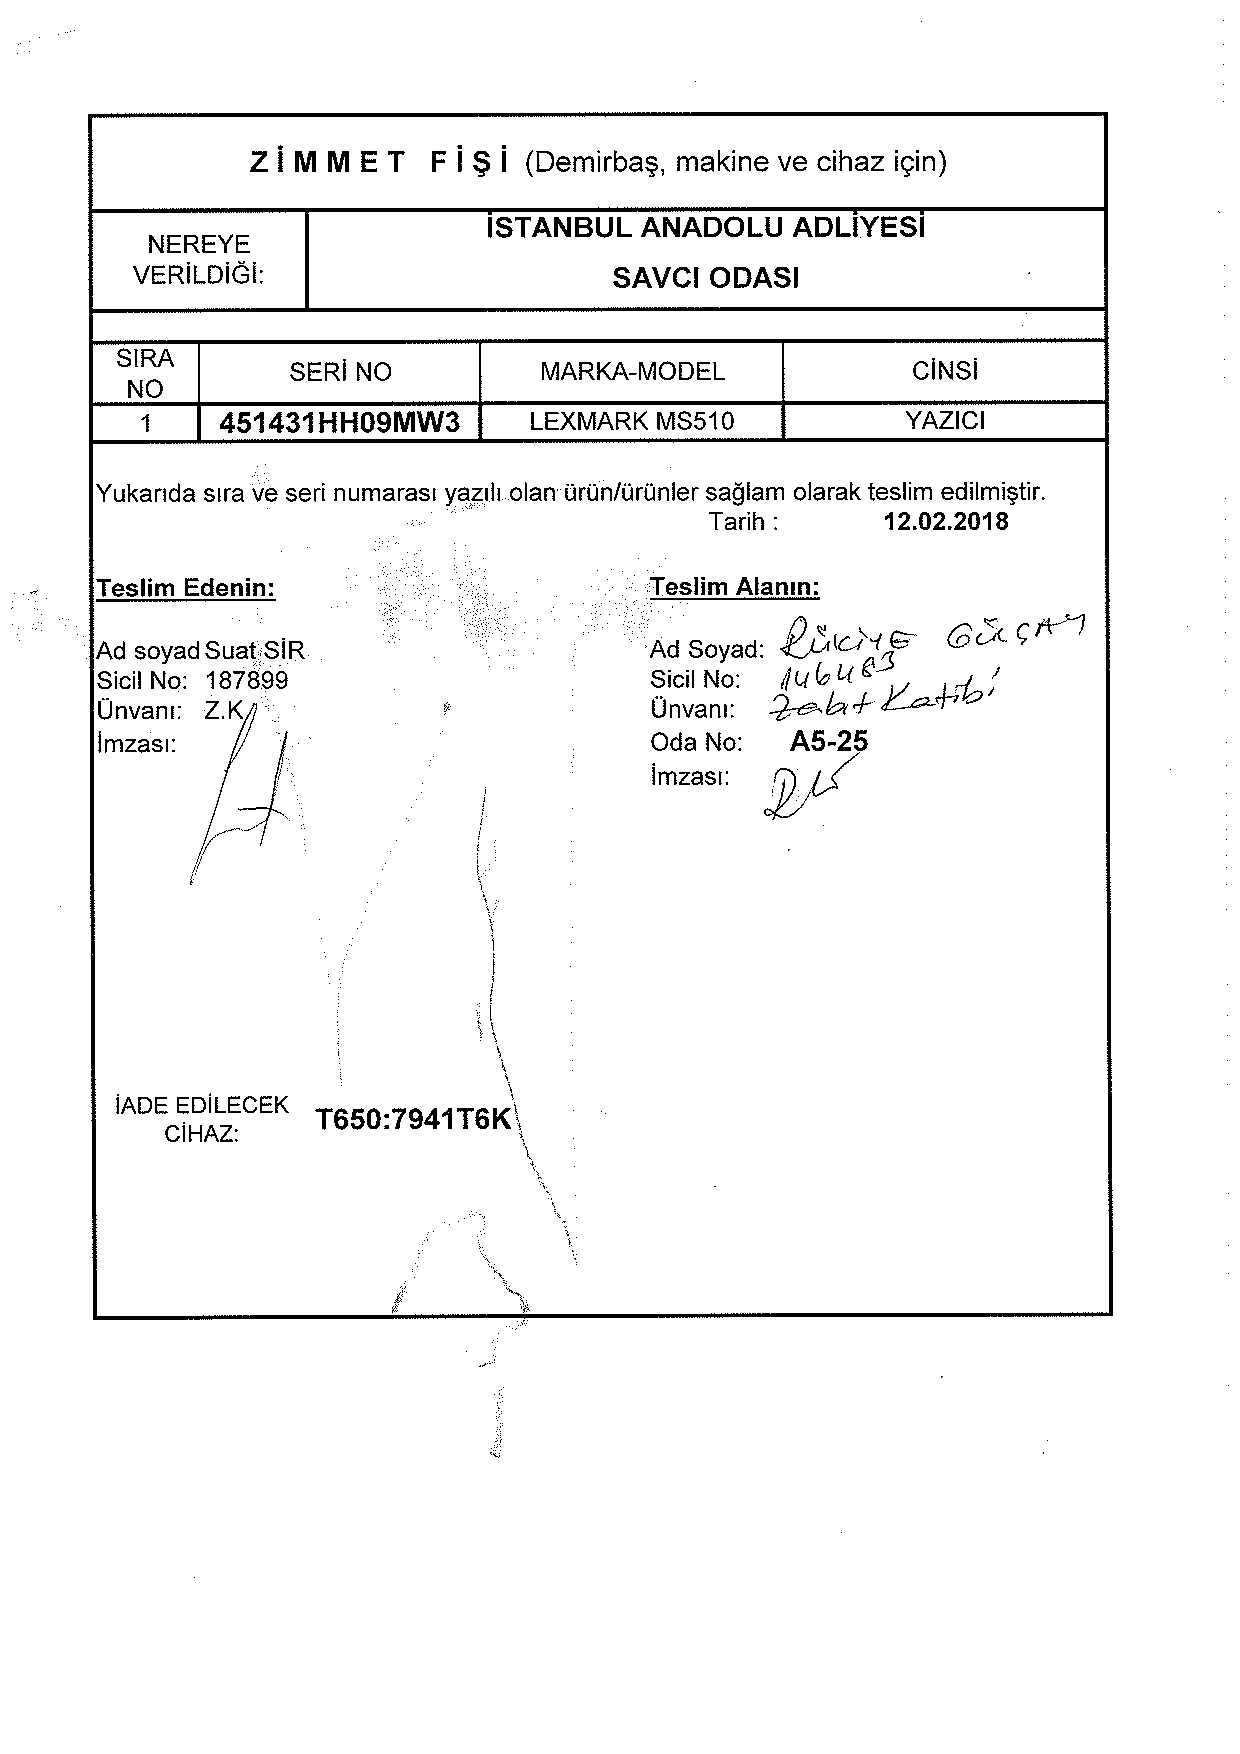 ZİMMET FİŞİ (Demirbaş, makine ve cihaz için)
NEREYE VERİLDİĞİ:
İSTANBUL ANADOLU ADLİYESİ
SAVCI ODASI
SIRA NO SERİ NO MARKA-MODEL CİNSİ
1 451431HH09MW3 LEXMARK MS510 YAZICI
Yukarıda sıra ve seri numarası yazılı olan ürün/ürünler sağlam olarak teslim edilmiştir.
Tarih : 12.02.2018
Teslim Edenin: Teslim Alanın:
Ad soyad Suat SİR Ad Soyad: RÜKİYE GÖKÇAY
Sicil No: 187899 Sicil No: 146483
Ünvanı: Z.K Ünvanı: Zabıt Katibi
İmzası: Oda No: A5-25
İmzası:
İADE EDİLECEK CİHAZ: T650:7941T6K